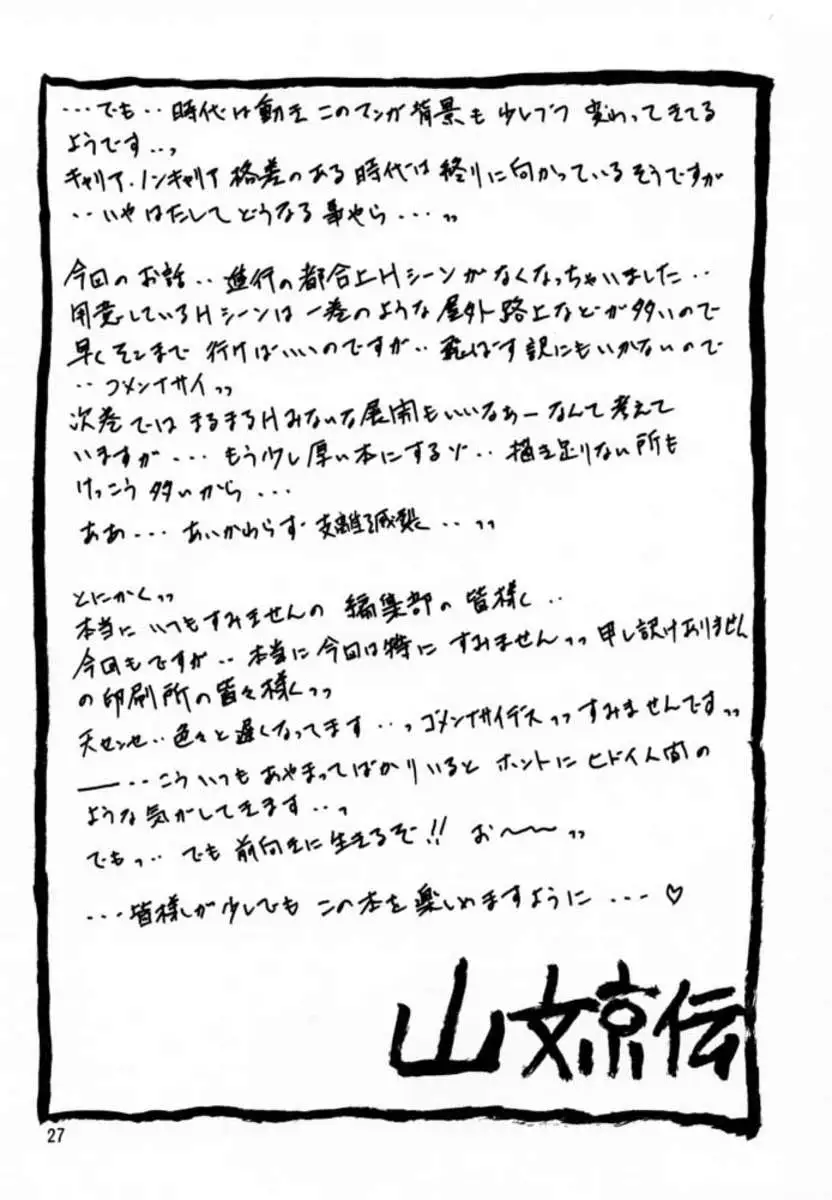 ・・・でも・・時代は動き このマンガ背景も 少しづつ 変わってきてる
ようです・・っ
キャリア、ノンキャリア 格差のある時代は 終りに向かっているそうですが
・・いや はたして どうなる事やら・・・っっ
今回のお話・・進行の都合上Hシーンがなくなっちゃいました・・
用意しているHシーンは 一巻のような 屋外 路上などが多いので
早くそこまで 行けばいいのですが・・飛ばす訳にもいかないので
・・コメンナサイっっ
次巻では まるまるHみたいな展開もいいなぁー なんて 考えて
いますが・・・もう少し厚い本にするゾ・・描き足りない所も
けっこう 多いから・・・
ああ・・・あいかわらず 支離滅裂・・っっ
とにかくっっ
本当に いつもすみませんの 編集部の 皆様く・・
今回もですが・・本当に今回は特に すみませんっっ 申し訳ありません
の印刷所の皆々様くっっ
天センセ・・色々と遅くなってます・・っ ゴメンナサイデスっっ すみませんですっっ
――・・こういつも あやまってばかりいると ホントに ヒドイ人間の
ような気がしてきます・・っ
でもっ・・でも 前向きに生きるぞ!! お〜〜〜っっ
・・・皆様しが 少しでも この本を 楽しめますように・・・♡
山文京伝
27